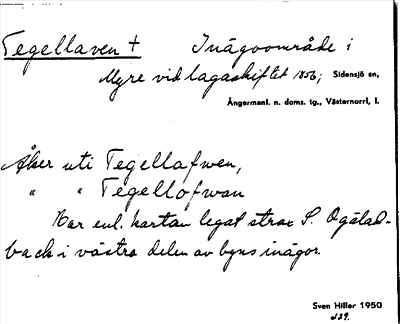 Tegellaven † Inägoområde i
Myre vid lagaskiftet 1856; Sidensjö sn,
Ångermanl. n. doms. tg., Västernorrl, l.
Åker uti Tegellafwen,
" " Tegellofwan
Har enl. kartan legat strax S. Ogälad-
back i västra delen av byns inägor.
Sven Hiller 1950